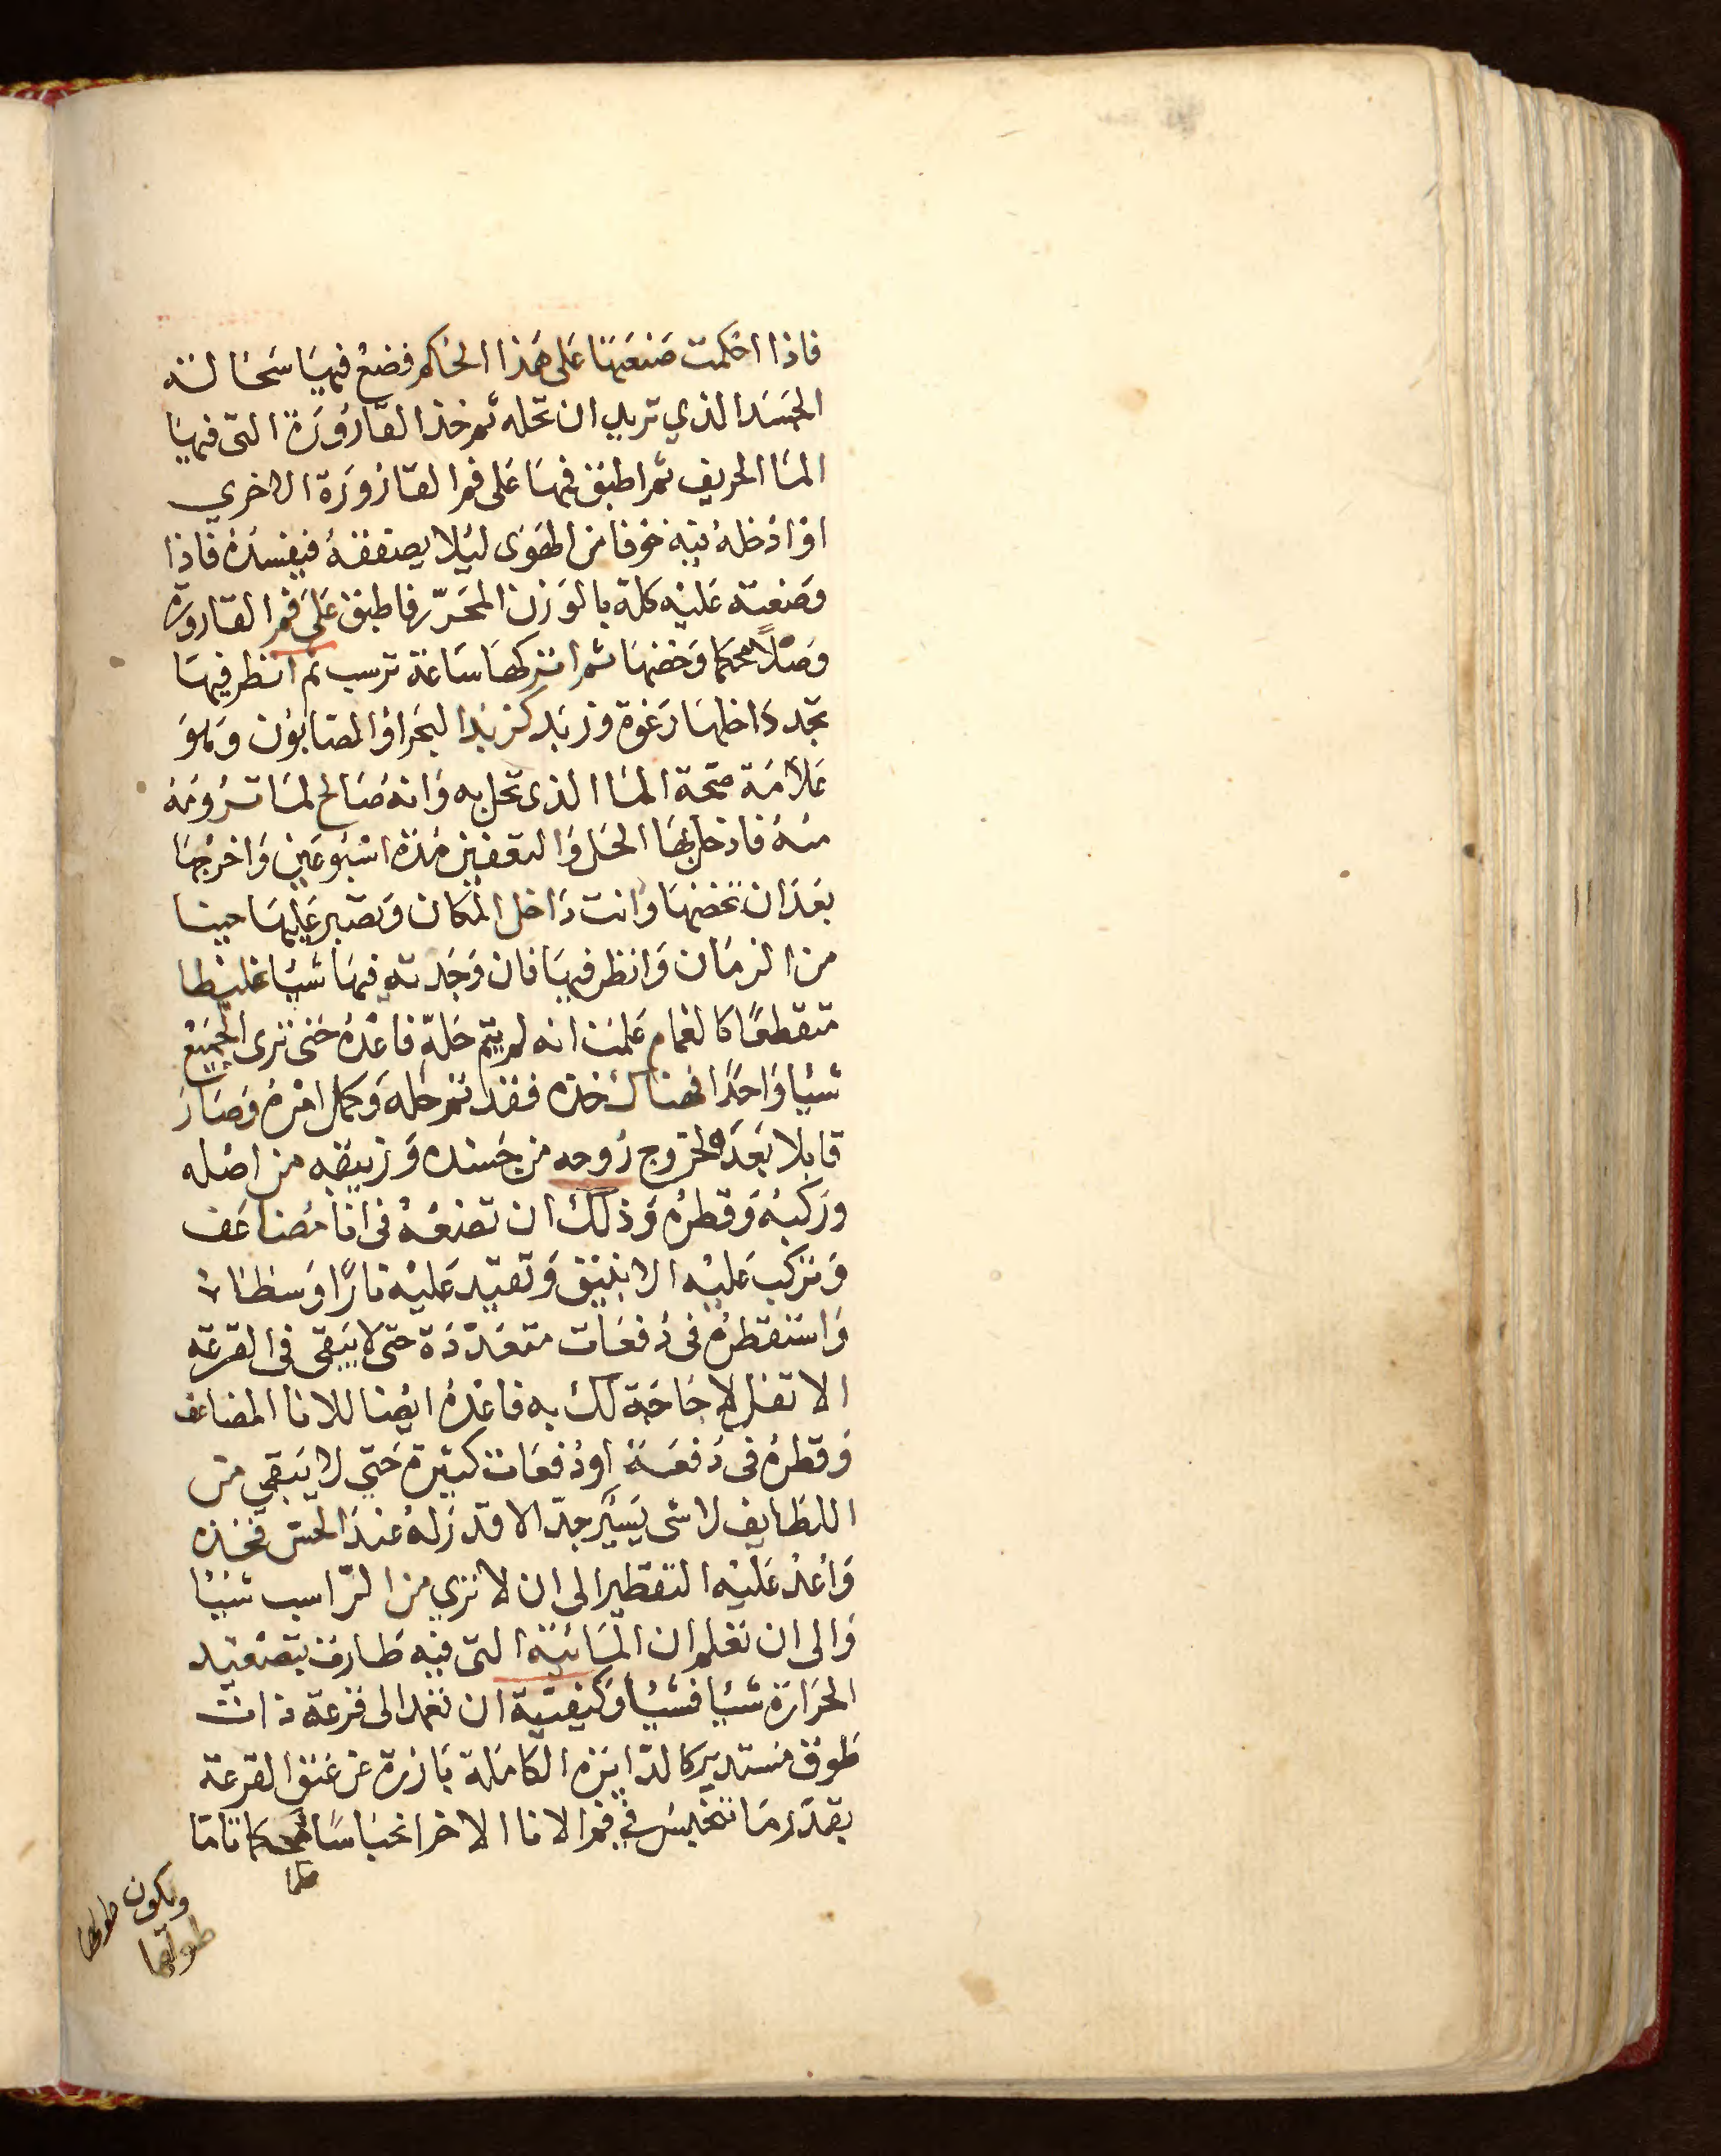 فاذا احكمت صنعتها على هذا الحاكم فضع فيها سحالة
الجسد الذي تريد ان تحله ثم خذ القارورة التى فيها
الما الحريف ثم اطبق فمها على فم القارورة الاخري
او ادخله فيه خوفا من الهوى ليلا يصفقه فيفسده فاذا
وضعته عليه كله بالوزن المحرر فاطبق على فم القاروره
وصلا محكما وخضها ثم اتركها ساعة ترسب ثم انظر فيها
تجد داخلها رغوة وزبد كزبد البحر او الصابون وهو
علامة صحة الما الذى تحل به وانه صالح لما ترومه
منه فادخل بها الحل والتعفين مدة اسبوعين واخرجها
بعد ان تخضها وانت داخل المكان وتصبر عليها حينا
من الزمان وانظر فيها فان وجدته فيها شيا غليظا
متقطعا كالغمام علمت انه لم يتم حله فاعده حتى ترى الجميع
شيا واحدا فهناك خذه فقد تم حله وكمل امره وصار
قابلا بعده لخروج روحه من جسده وزيبقه من اصله
وركبه وقطره وذلك ان تضعه فى انا مضاعف
وتركب عليه الانبيق وتقيد عليه نارا وسطا
واستقطره فى دفعات متعددة حتى لا يبقى فى القرعه
الا تفل لا حاجة لك به فاعده ايضا للانا المضاعف
وقطره فى دفعة او دفعات كثيرة حتي لا يبقي من
اللطايف لا شى يسير جدا لا قدر له عند الحس فخذه
واعد عليه التقطير الى ان لا تري من الراسب شيا
والى ان تعلم ان المائية التى فيه طارت بتصعيد
الحرارة شيا فشيا وكيفية ان تعمد الى قرعة ذات
طوق مستدير كالدايره الكاملة بارزة عن عنق القرعة
بقدر ما تنحبس فى فم الانا الاخر انحباسا محكما تاما
ويكون طولها
طوقها